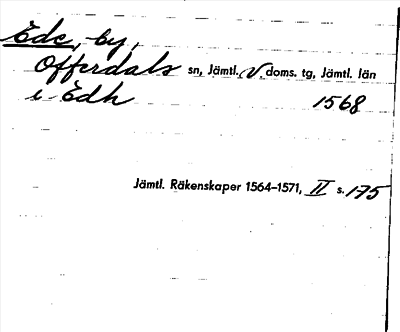 Ede, by,
Offerdals sn, Jämtl. V. doms. tg, Jämtl. län
i Edh 1568
Jämtl. Räkenskaper 1564–1571, II s. 175